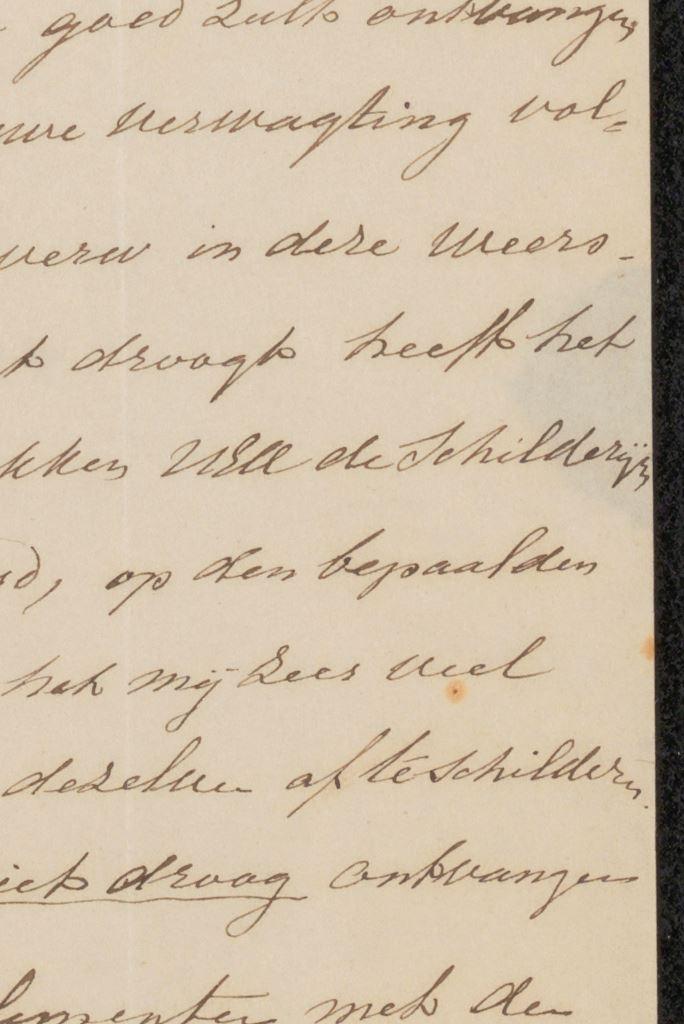 goed zult ontvangen
uwe verwagting vol=
verw in deze weers-
t droogt heeft het
kken UEd de Schilderijen
rd, op den bepaalden
het mij zeer veel
dezelve af te schilderen.
iet droog ontvangen
plementen met de